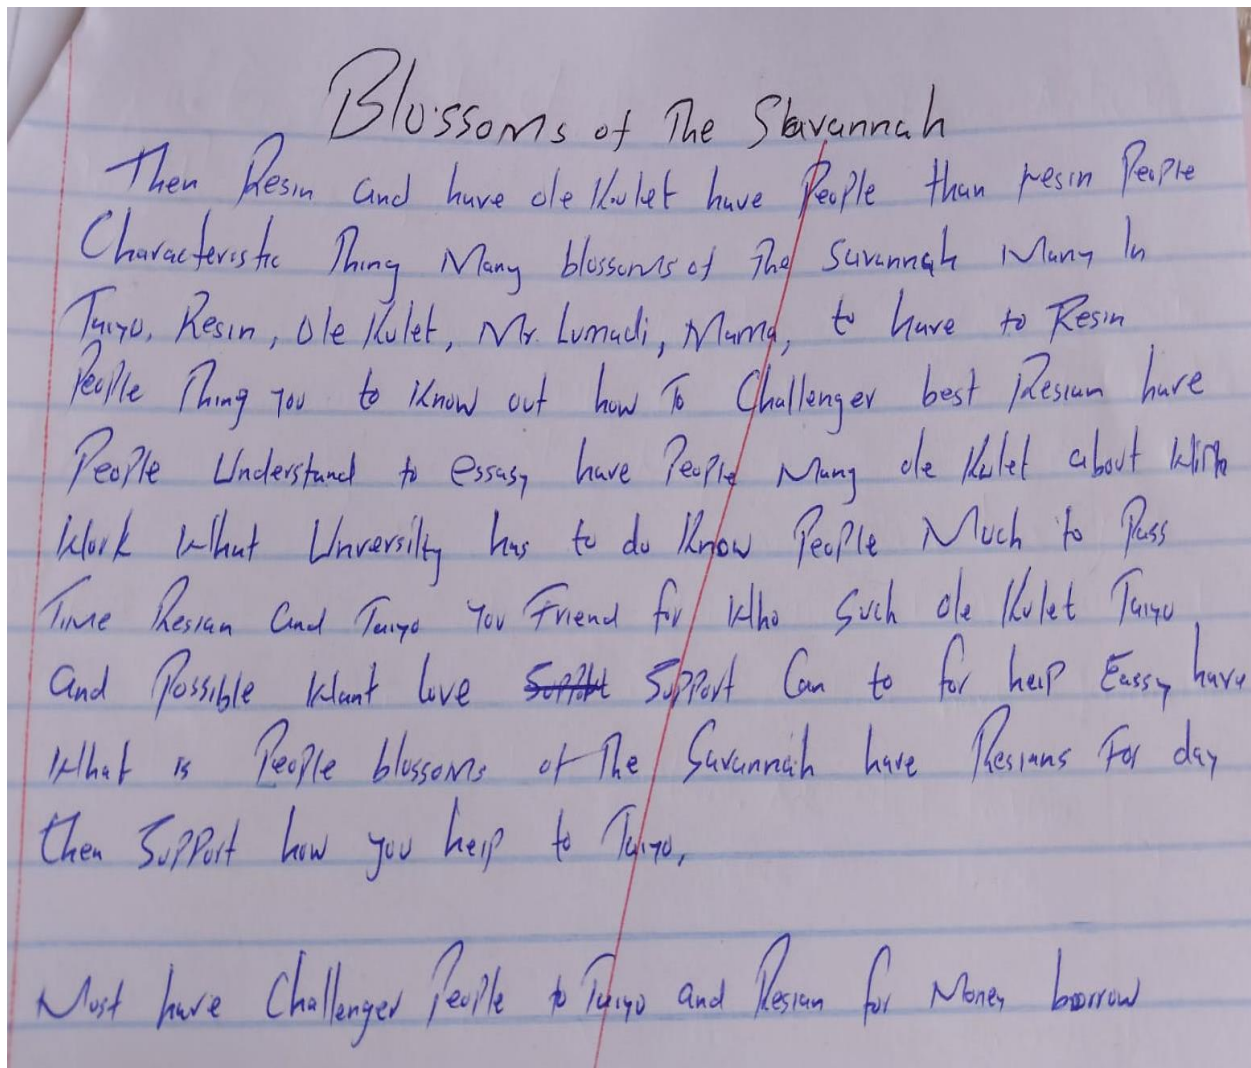 Blossoms of The Savannah
Then Resin and have ole Kulet have People than resin People
Characteristic Thing Many blossoms of The Savannah Many In
Taiyo, Resin, Ole Kulet, Mr. Lumadi, Mama, to have to Resin
People Thing you to Know out how To Challenger best Resian have
People Understand to essasy have People Many ole Kulet about With
Work What Unversilty has to do Know People Much to Pass
Time Resian and Taiyo you Friend for Who Such Ole Kulet Taiyo
and Possible Want love Support Can to for help Eassy have
What is People blossoms of The Savannah have Resians For day
then Support how you help to Taiyo,
Most have Challenger People to Taiyo and Resian for Money borrow